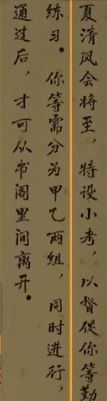 夏清风会将至，特设小考，以督促你等勤
练习。你等需分为甲乙两组，同时进行，
通过后，才可从书阁里间离开。